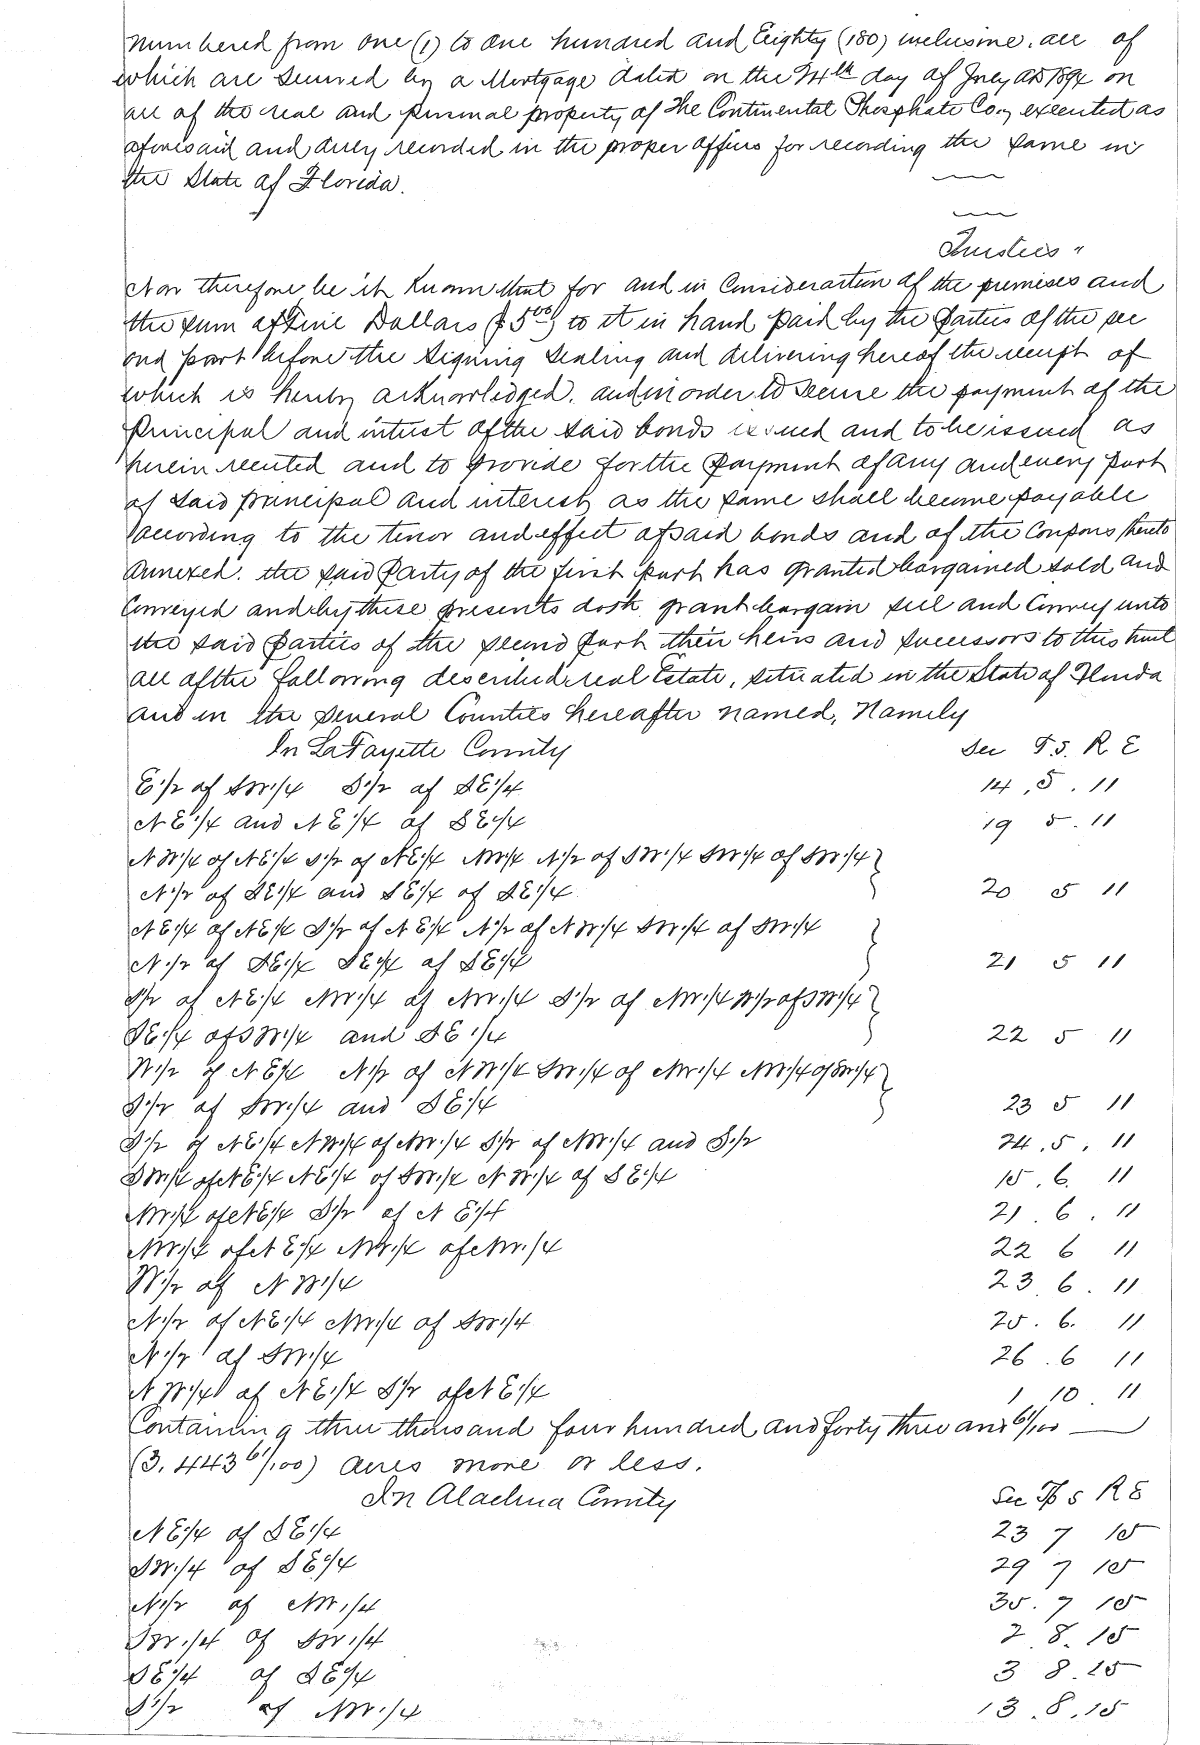 numbered from one (1) to one hundred and Eighty (180) inclusive. all of
which are secured by a Mortgage dated on the 24th day of July AD 1894 on
all of the real and personal property of The Continental Phosphate Co., executed as
aforesaid and duly recorded in the proper offices for recording the same in
the State of Florida.
Trustees "
Now therefore be it Known that for and in Consideration of the premises and
the sum of Five Dollars ($5 00) to it in hand paid by the Parties of the sec
ond part before the signing sealing and delivering hereof the receipt of
which is hereby acknowledged. and in order to secure the payment of the
Principal and intrest of the said bonds issued and to be issued as
herein recited and to provide for the payment of any and every part
of said principal and interest as the same shall become payable
according to the tenor and effect of said bonds and of the Coupons thereto
annexed. the said Party of the first part has granted bargained sold and
Conveyed and by these presents doth grant bargain sell and Convey unto
the said parties of the second part their heirs and successors to this trust
all of the following described real Estate, situated in the State of Florida
and in the several Counties hereafter named, Namely
In LaFayette County Sec T.S. R E
E 1/2 of SW 1/4 S 1/2 of SE 1/4 14 . 5 . 11
NE 1/4 and NE 1/4 of SE 1/4 19 5 . 11
NW 1/4 of NE 1/4 S 1/2 of NE 1/4 NW 1/4 N 1/2 of SW 1/4 SW 1/4 of SW 1/4 }
N 1/2 of SE 1/4 and SE 1/4 of SE 1/4 20 5 11
NE 1/4 of NE 1/4 S 1/2 of NE 1/4 N 1/2 of NW 1/4 SW 1/4 of SW 1/4 }
N 1/2 of SE 1/4 SE 1/4 of SE 1/4 21 5 11
S 1/2 of NE 1/4 NW 1/4 of NW 1/4 S 1/2 of NW 1/4 W 1/2 of SW 1/4 }
SE 1/4 of SW 1/4 and SE 1/4 22 5 11
W 1/2 of NE 1/4 N 1/2 of NW 1/4 SW 1/4 of NW 1/4 NW 1/4 of SW 1/4 }
S 1/2 of SW 1/4 and SE 1/4 23 5 11
S 1/2 of NE 1/4 NW 1/4 of NW 1/4 S 1/2 of NW 1/4 and S 1/2 24 . 5 . 11
SW 1/4 of NE 1/4 NE 1/4 of SW 1/4 NW 1/4 of SE 1/4 15 . 6. 11
NW 1/4 of NE 1/4 S 1/2 of NE 1/4 21 . 6 . 11
NW 1/4 of NE 1/4 NW 1/4 of NW 1/4 22 6 11
W 1/2 of NW 1/4 23 . 6 . 11
N 1/2 of NE 1/4 NW 1/4 of SW 1/4 25 . 6. 11
N 1/2 of SW 1/4 26 . 6 11
NW 1/4 of NE 1/4 S 1/2 of NE 1/4 1 10 . 11
Containing three thousand four hundred and forty three and 61/100
(3,443 61/100) acres more or less.
In Alachua County Sec Tp S R E
NE 1/4 of SE 1/4 23 7 15
SW 1/4 of SE 1/4 29 7 15
N 1/2 of NW 1/4 35 . 7 15
SW 1/4 of SW 1/4 2 8. 15
SE 1/4 of SE 1/4 3 8 . 15
S 1/2 of NW 1/4 13 . 8 . 15